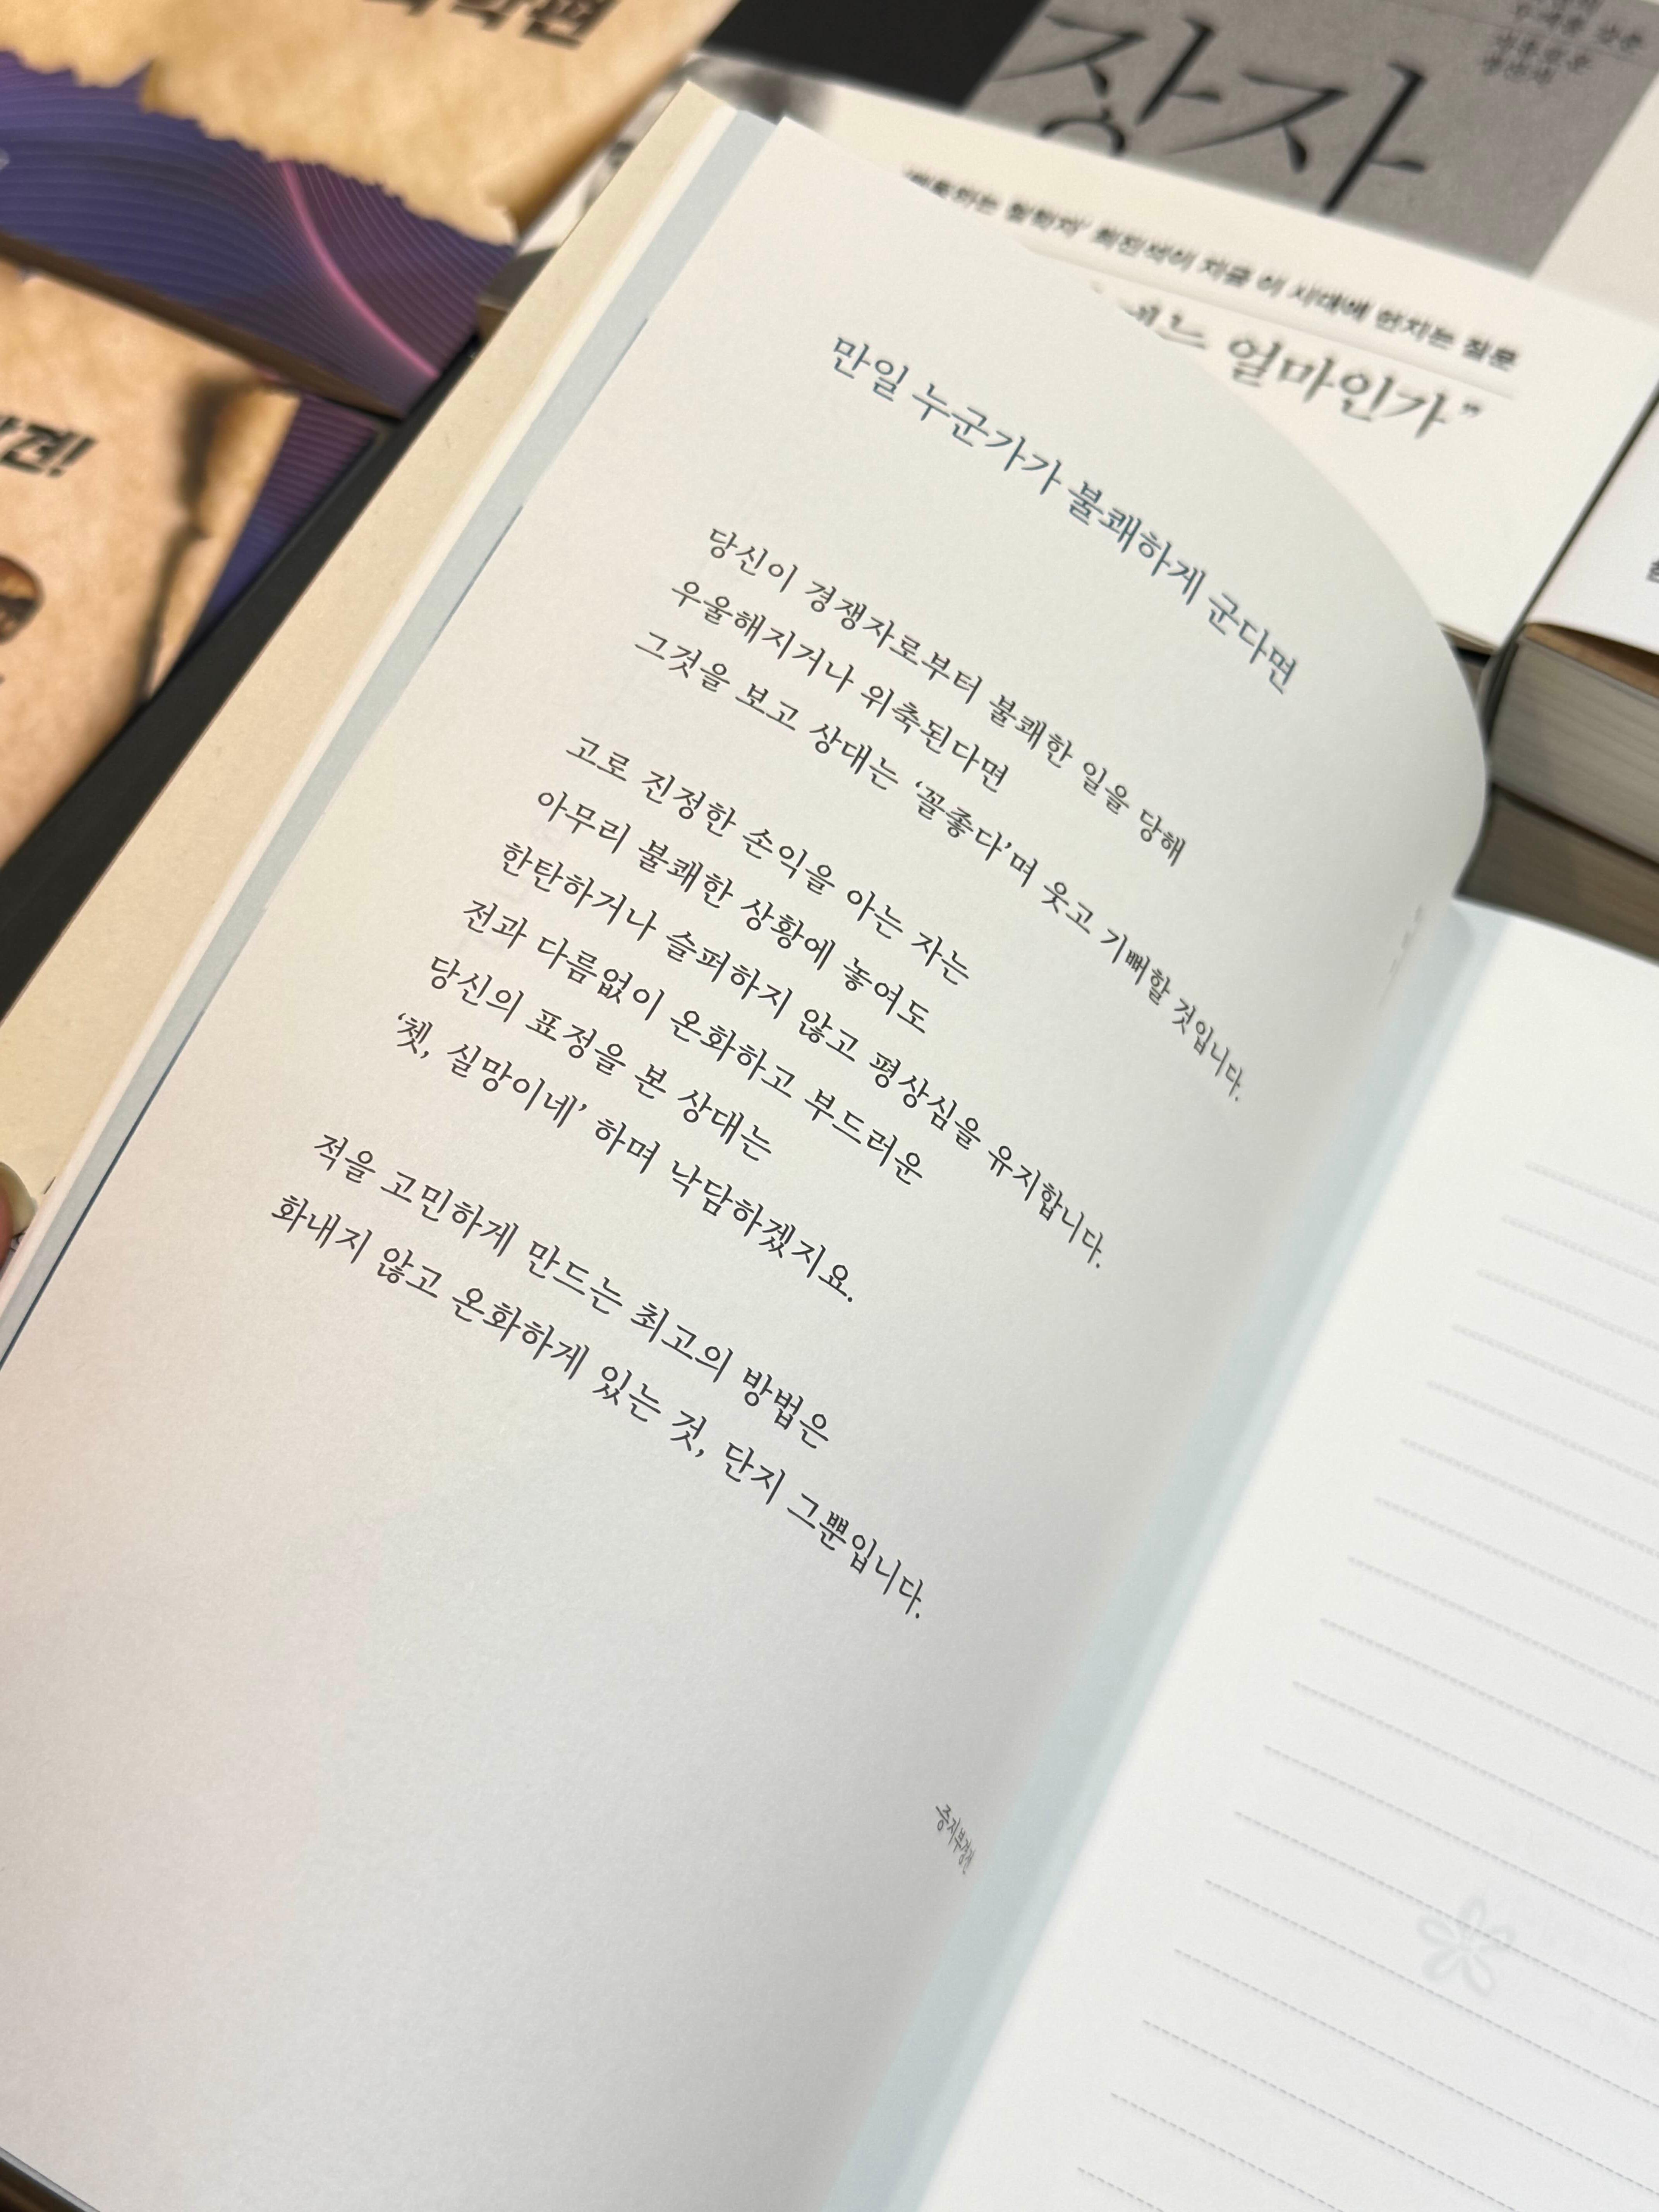 장자
얼마인가”
만일 누군가가 불쾌하게 군다면
당신이 경쟁자로부터 불쾌한 일을 당해
우울해지거나 위축된다면
그것을 보고 상대는 ‘꼴좋다’며 웃고 기뻐할 것입니다.
고로 진정한 손익을 아는 자는
아무리 불쾌한 상황에 놓여도
한탄하거나 슬퍼하지 않고 평상심을 유지합니다.
전과 다름없이 온화하고 부드러운
당신의 표정을 본 상대는
‘쳇, 실망이네’ 하며 낙담하겠지요.
적을 고민하게 만드는 최고의 방법은
화내지 않고 온화하게 있는 것, 단지 그뿐입니다.
증지부경전